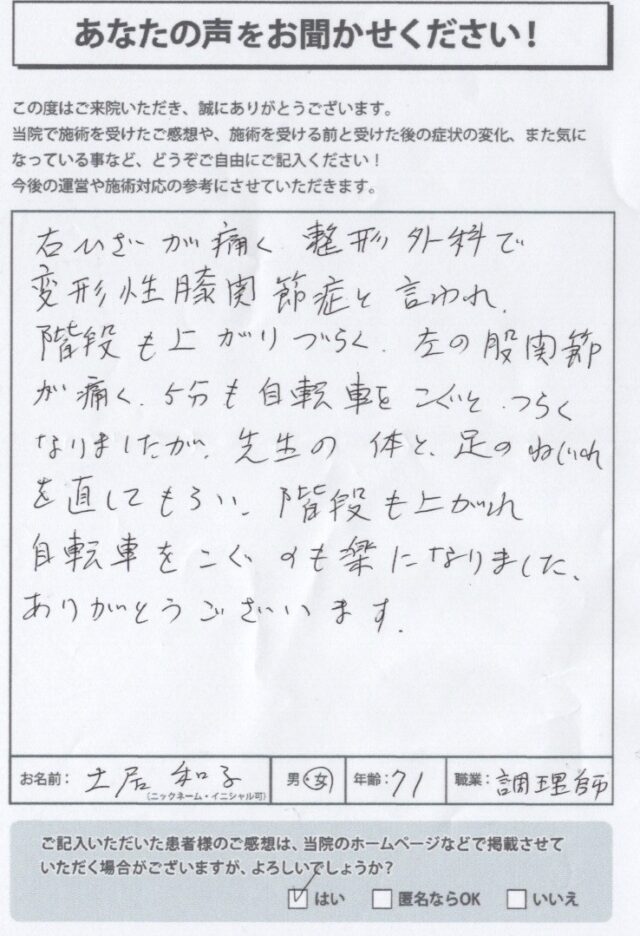 あなたの声をお聞かせください！
この度はご来院いただき、誠にありがとうございます。
当院で施術を受けたご感想や、施術を受ける前と受けた後の症状の変化、また気に
なっている事など、どうぞご自由にご記入ください！
今後の運営や施術対応の参考にさせていただきます。
右ひざが痛く 整形外科で
変形性膝関節症と言われ、
階段も上がりづらく、左の股関節
が痛く、5分も自転車をこぐと、つらく
なりましたが、先生の体と、足のねじれ
を直してもらい、階段も上がれ
自転車をこぐのも楽になりました、
ありがとうございます。
お名前：土居 和子 (ニックネーム・イニシャル可) 男・女 年齢：71 職業：調理師
ご記入いただいた患者様のご感想は、当院のホームページなどで掲載させて
いただく場合がございますが、よろしいでしょうか？
はい 匿名ならOK いいえ